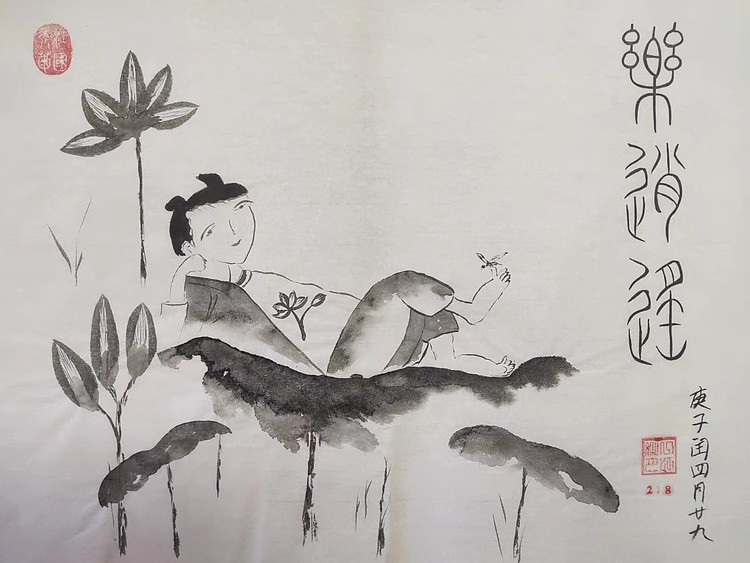 樂逍遥
庚子闰四月廿九
218